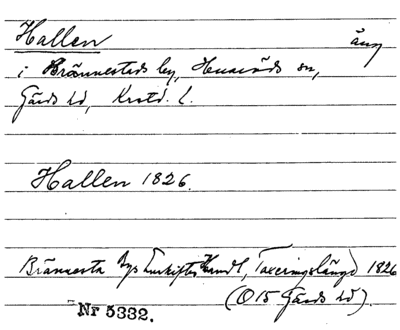 Hallen äng
i Brännestads by, Huaröds sn,
Gärds hd, Krstd. l.
Hallen 1826.
Brännesta Bys Enskiftes Handl, Taxeringslängd 1826
(O 15 Gärds hd).
Nr 5332.